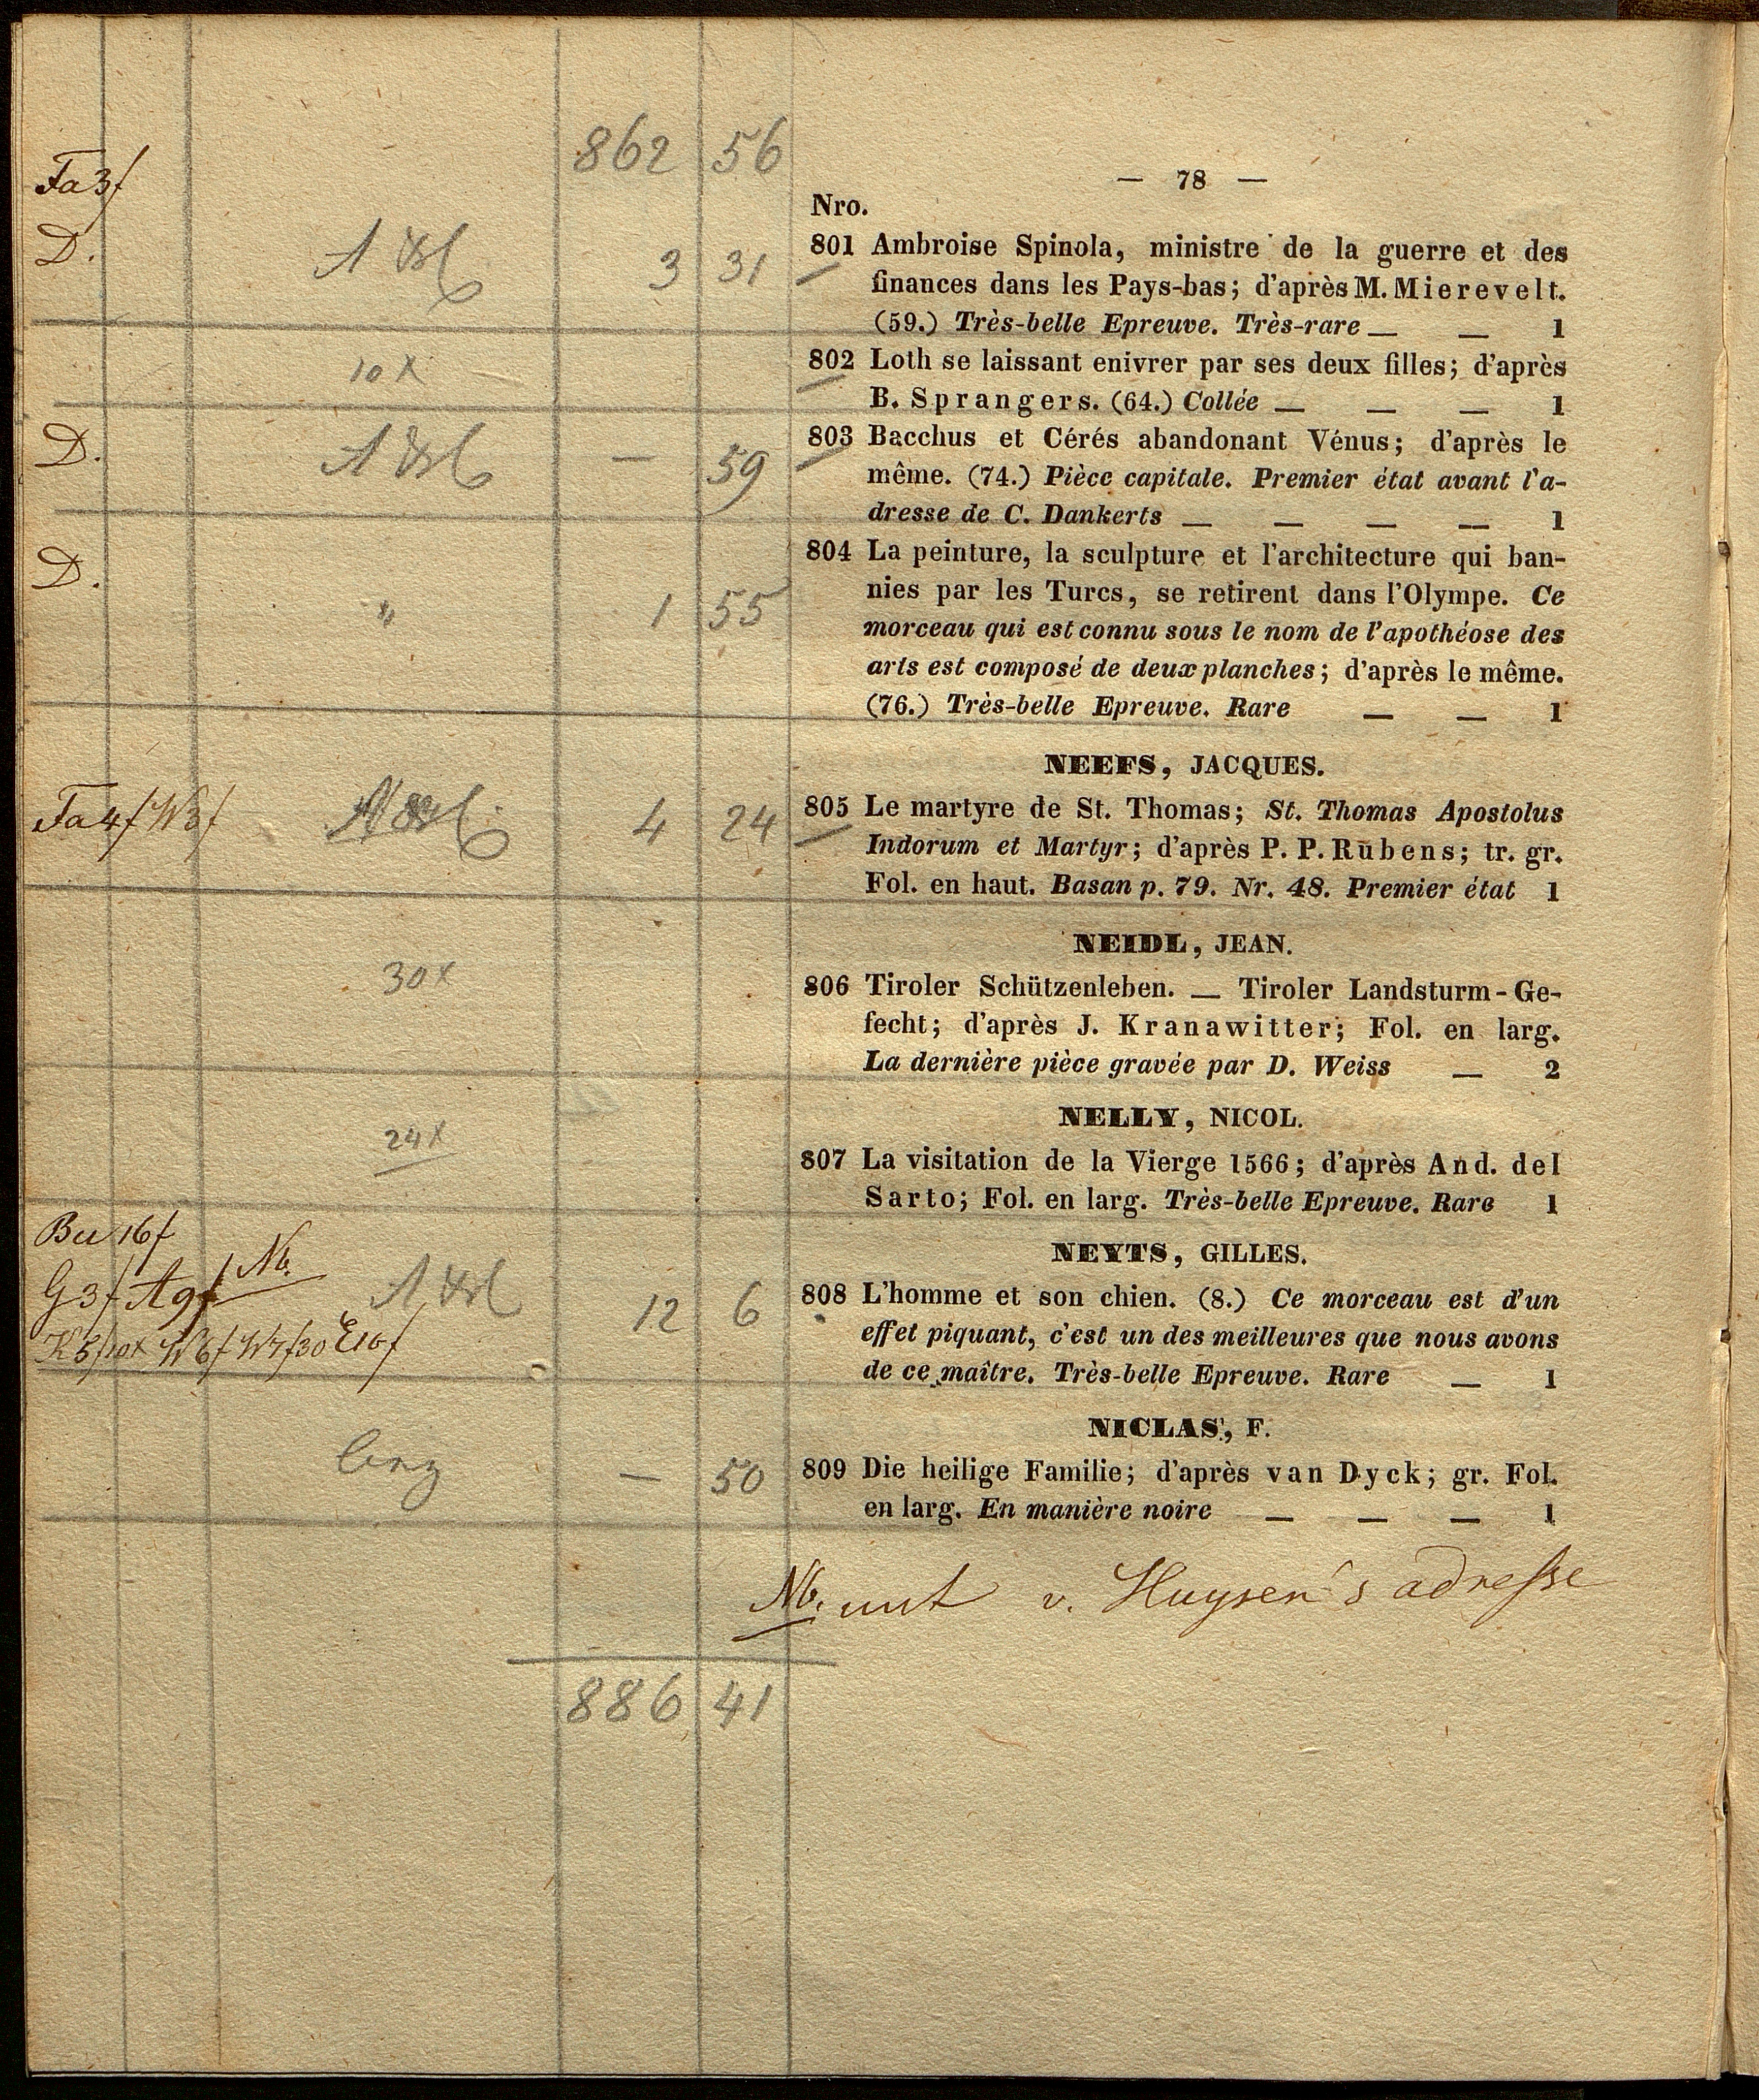 862 56
— 78 —
Ta 3f
Nro.
D.
3 31
801 Ambroise Spinola, ministre de la guerre et des
finances dans les Pays-bas; d'après M. Mierevelt.
(59.) Très-belle Epreuve. Très-rare — — 1
10 x
802 Loth se laissant enivrer par ses deux filles; d'après
B. Sprangers. (64.) Collée — — — 1
D.
— 59
803 Bacchus et Cérés abandonant Vénus; d'après le
même. (74.) Pièce capitale. Premier état avant l'a-
dresse de C. Dankerts — — — — 1
D.
" 1 55
804 La peinture, la sculpture et l'architecture qui ban-
nies par les Turcs, se retirent dans l'Olympe. Ce
morceau qui est connu sous le nom de l'apothéose des
arts est composé de deux planches; d'après le même.
(76.) Très-belle Epreuve. Rare — — 1
NEEFS, JACQUES.
Ta 4f W3f
4 24
805 Le martyre de St. Thomas; St. Thomas Apostolus
Indorum et Martyr; d'après P. P. Rubens; tr. gr.
Fol. en haut. Basan p. 79. Nr. 48. Premier état 1
NEIDL, JEAN.
30 x
806 Tiroler Schützenleben. — Tiroler Landsturm-Ge-
fecht; d'après J. Kranawitter; Fol. en larg.
La dernière pièce gravée par D. Weiss — 2
NELLY, NICOL.
24 x
807 La visitation de la Vierge 1566; d'après And. del
Sarto; Fol. en larg. Très-belle Epreuve. Rare 1
NEYTS, GILLES.
Bu 16f
G3f A9f Nb.
K5f10x W6f W7f30 E10f
12 6
808 L'homme et son chien. (8.) Ce morceau est d'un
effet piquant, c'est un des meilleures que nous avons
de ce maître. Très-belle Epreuve. Rare — 1
NICLAS, F.
— 50
809 Die heilige Familie; d'après van Dyck; gr. Fol.
en larg. En manière noire — — — 1
Nb. mit v. Huysen's adresse
886 41